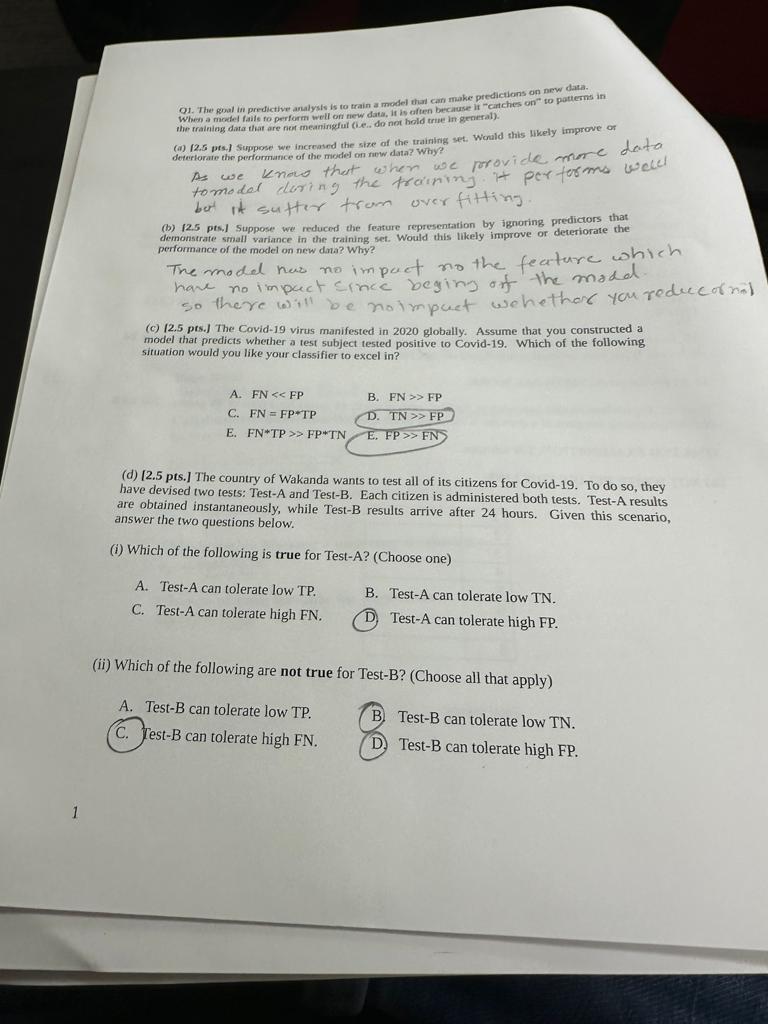 Q1. The goal in predictive analysis is to train a model that can make predictions on new data.
When a model fails to perform well on new data, it is often because it "catches on" to patterns in
the training data that are not meaningful (i.e., do not hold true in general).
(a) [2.5 pts.] Suppose we increased the size of the training set. Would this likely improve or
deteriorate the performance of the model on new data? Why?
As we know that when we provide more data
to model during the training. it performs well
but it suffer from over fitting.
(b) [2.5 pts.] Suppose we reduced the feature representation by ignoring predictors that
demonstrate small variance in the training set. Would this likely improve or deteriorate the
performance of the model on new data? Why?
The model has no impact no the feature which
have no impact since beging off the model.
so there will be no impact wehether you reduce or not
(c) [2.5 pts.] The Covid-19 virus manifested in 2020 globally. Assume that you constructed a
model that predicts whether a test subject tested positive to Covid-19. Which of the following
situation would you like your classifier to excel in?
A. FN << FP B. FN >> FP
C. FN = FP*TP D. TN >> FP
E. FN*TP >> FP*TN E. FP >> FN
(d) [2.5 pts.] The country of Wakanda wants to test all of its citizens for Covid-19. To do so, they
have devised two tests: Test-A and Test-B. Each citizen is administered both tests. Test-A results
are obtained instantaneously, while Test-B results arrive after 24 hours. Given this scenario,
answer the two questions below.
(i) Which of the following is true for Test-A? (Choose one)
A. Test-A can tolerate low TP. B. Test-A can tolerate low TN.
C. Test-A can tolerate high FN. D. Test-A can tolerate high FP.
(ii) Which of the following are not true for Test-B? (Choose all that apply)
A. Test-B can tolerate low TP. B. Test-B can tolerate low TN.
C. Test-B can tolerate high FN. D. Test-B can tolerate high FP.
1